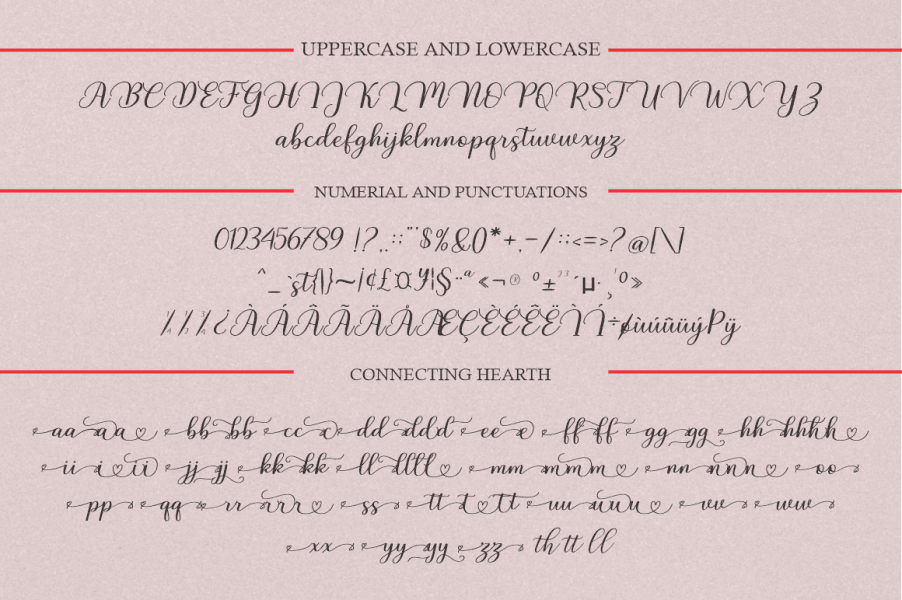 UPPERCASE AND LOWERCASE
A B C D E F G H I J K L M N O P Q R S T U V W X Y Z
abcdefghijklmnopqrstuvwxyz
NUMERIAL AND PUNCTUATIONS
0123456789 !?..::¨˙$%&()*+.-/::<=>?@[\]
^_`št{|}~¡¢£¤¥¦§¨ª«¬® º±²³´µ·¸¹º»
¿ÀÁÂÃÄÅÆÇÈÉÊËÌÍ÷øùúûüýÞÿ
CONNECTING HEARTH
aa aa a bb bb cc c dd ddd ee e ff ff gg gg hh hhhh
ii i ii jj jj kk kk ll llll mm mmm nn nnn oo
pp qq rr rrr ss tt t tt uu uuu vv ww
xx yy yy zz th tt ll